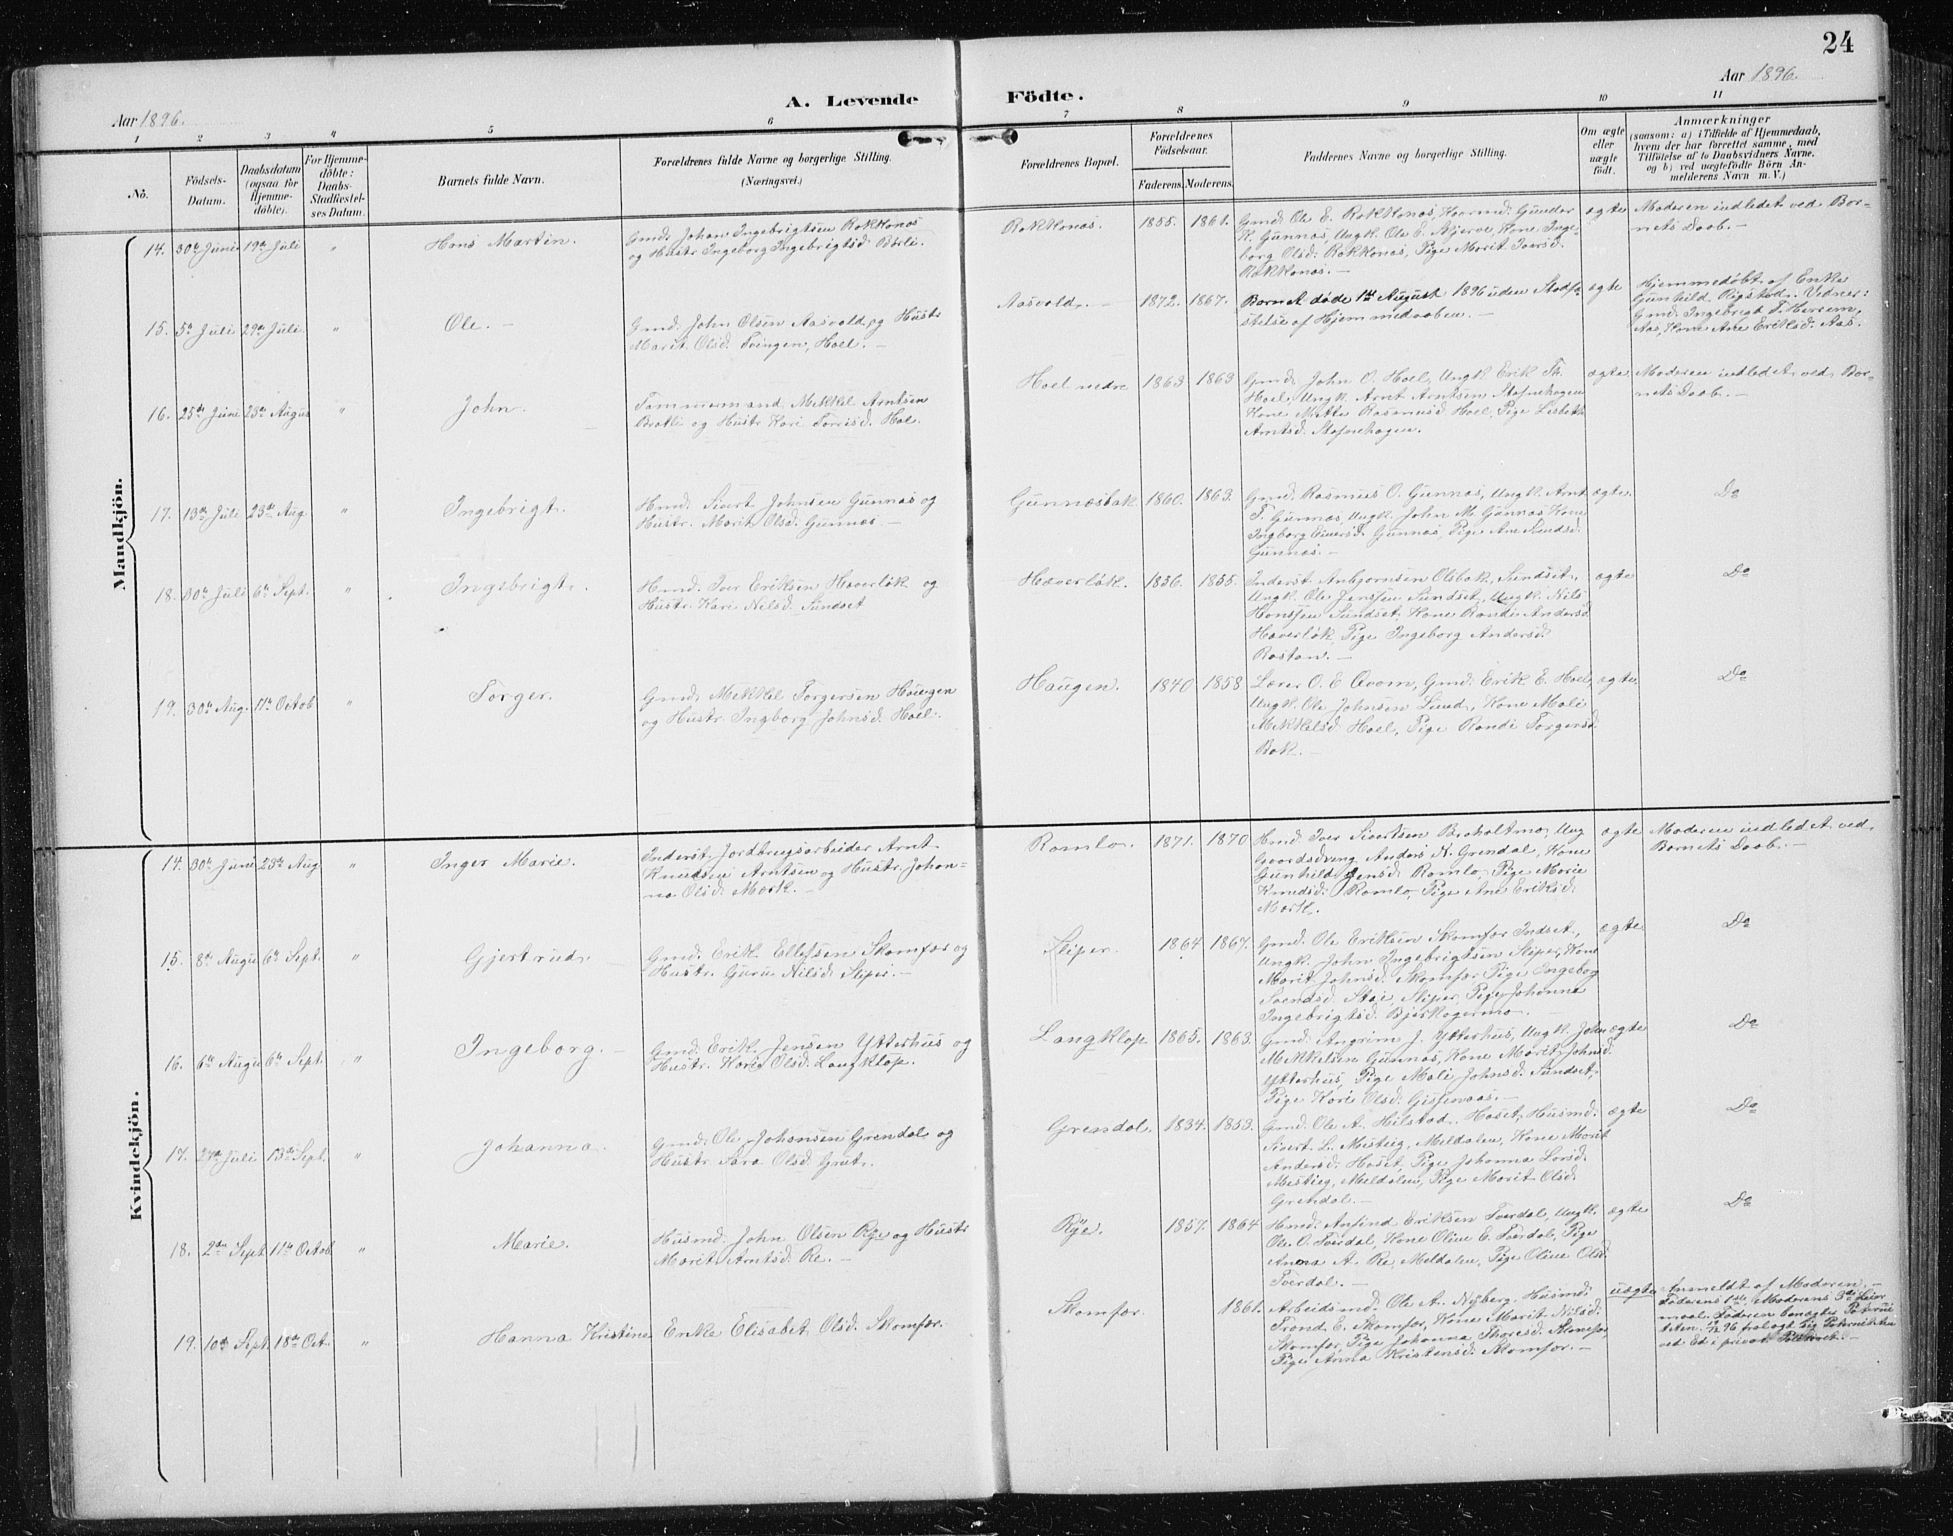 24
Aar 1896.
Aar 1896.
A. Levende Födte.
1 2 3 4 5 6 7 8 9 10 11
No.
Födsels-Datum.
Daabsdatum (ogsaa for Hjemme-döbte).
For Hjemme-döbte: Daabs-Stadfæstel-ses Datum.
Barnets fulde Navn.
Forældrenes fulde Navne og borgerlige Stilling. (Næringsvei.)
Forældrenes Bopæl.
Forældrenes Födselsaar.
Faderens. Moderens.
Faddernes Navne og borgerlige Stilling.
Om ægte eller uægte födt.
Anmærkninger
(saasom: a) i Tilfælde af Hjemmedaab,
hvem der har forrettet samme, med
Tilföielse af to Daabsvidners Navne,
og b) ved uægtefödte Börn An-
melderens Navn m. V.)
Mandkjön.
14. 30te Juni 19de Juli " Hans Martin.
Gmd. Johan Ingebrigtsen Rokkones
og Hustr. Ingeborg Ingebrigtsd. Bårli.
Rokkones. 1855. 1861.
Gmd. Ole E. Rokkones, Gunder
K. Gunnes, Ungk. Ole E. Kone Inge-
borg Olsd. Rokkones, Pige Marit Iversd.
Rokkones. —
ægte
Moderen indledet ved Bar-
nets Daab. —
15. 5te Juli 29de Juli " Ole. —
Gmd. John Olsen Aasvold, og Hustr.
Marit Olsd. Svingen, Hoel. —
Aasvold. — 1872. 1867.
Barnet døde 1ste August 1896 uden Stadfæ-
stelse af Hjemmedaaben. —
ægte
Hjemmedøbt af Enke
Gunhild Rigstad. Vidner:
Gmd. Ingebrigt T.
Aas, Kone Ane Eriksd. Aas.
16. 25de Juni 23de Augus " John.
Tømmermand Mikkel Arntsen
Bratli og Hustr. Kari Torrisd. Hoel.
Hoel nedre 1863 1863
Gmd. John O. Hoel, Ungk. Erik
Hoel, Ungk. Arnt Arntsen
Kone Mette Rasmusd. Hoel, Pige Lisbeth
Arntsd.
ægte
Moderen indledet ved Bar-
nets Daab. —
17. 13de Juli 23de Aug. " Ingebrigt.
Hmd. Sivert Johnsen Gunnes og
Hustr. Marit Olsd. Gunnes. —
Gunnesbak 1860. 1863.
Gmd. Rasmus O. Gunnes, Ungk. Arnt
T. Gunnes, Ungk. John M. Gunnes, Kone
Ingborg Gunnes, Pige Ane
Gunnes. —
ægte. Do
18. 30te Juli 6te Sept. " Ingebrigt.
Hmd. Iver Eriksen Haverløk og
Hustr. Kari Nilsd. Sundset
Haverløk. 1856. 1855.
Inderst Anbjørnsen Olsbak, Sundset,
Ungk. Ole Jenssen Sundset, Ungk. Nils
Hanssen Sundset, Kone Randi Andersd.
Haverløk, Pige Ingeborg Andersd.
ægte Do
19. 30te Aug. 11te Octob. " Torger.
Gmd. Mikkel Torgersen Haugen
og Hustr. Ingborg Johnsd. Hoel.
Haugen. 1840 1858.
Lærer O. E. Gmd. Erik E. Hoel,
Ungk. Ole Johnsen Lund, Kone Mali
Mikkelsd. Hoel, Pige Randi Torgersd.
Bak. —
ægte. Do
Kvindekjön.
14. 30te Juni 23de Aug. " Inger Marie.
Inderst, Jordbrugsarbeider Arnt
Knudsen Arntsen og Hustr. Johan-
na Olsd. Mørk. —
Romlo. 1871. 1870
Hmd. Iver Sivertsen Broholtmo, Ung
Anders N. Grendal, Kone
Gunhild Jensd. Romlo, Pige Marie
Knudsd. Romlo, Pige Ane Eriksd.
Mørk.
ægte
Moderen indledet ved
Barnets Daab. —
15. 8de Augu 6te Sept. " Gjertrud.
Gmd. Erik Ellefsen Skomfar og
Hustr. Guru Nilsd. Sliper. —
Sliper. 1864. 1867.
Gmd. Ole Eriksen Skomfar Indset,
Ungk. John Ingebrigtsen Sliper, Kone
Marit Johnsd. Skomfar, Pige Ingeborg
Svendsd. Sliper, Pige Johanna
Ingebrigtsd.
ægte Do
16. 6te Augu 6te Sept. " Ingeborg. —
Gmd. Erik Jensen Ytterhus og
Hustr. Kari Olsd. Langklop.
Langklop. 1865. 1863.
Gmd. Angrim J. Ytterhus, Ungk. John
Mikkelsen Gunnes, Kone Marit Johnsd.
Ytterhus, Pige Mali Johnsd. Sundset,
Pige Kari Olsd. —
ægte Do
17. 27de Juli 13de Sept. " Johanna.
Gmd. Ole Johansen Grendal og
Hustr. Sara Olsd. Grut.
Grendal. 1834. 1853.
Gmd. Ole A. Hilstad, Hoset, Husmd.
Sivert L. Mestieg, Meldalen, Kone Marit
Andersd. Hoset, Pige Johanna Larsd.
Mestieg, Meldalen, Pige Marit Olsd.
Grendal. —
ægte Do
18. 2den Sept. 11te Octob. " Marie.
Husmd. John Olsen Rye og Hustr.
Marit Arntsd. Re. —
Rye. 1857. 1864.
Hmd. Anfind Eriksen Tverdal, Ungk.
Ole O. Tverdal, Kone Oline E. Tverdal, Pige
Anna A. Re, Meldalen, Pige Oline Olsd.
Tverdal. —
ægte Do
19. 10de Sept. 18de Oct. " Hanna Kristine
Enke Elisabet Olsd. Skomfar.
Skomfar. 1861.
Arbeidsmd. Ole A. Nyberg, Husmd.
Trond E. Skomfar, Kone Marit Nilsd.
Skomfar, Pige Johanna Thoresd. Skomfar,
Pige Anna Kristensd. Skomfar. —
uægte
Anmeldt af Moderen. —
Faderens 1ste, Moderens 3die Leier-
maal. Faderen benægter Paternite-
ten. 96 fralagt sig Paterniteten
ved Ed i privat —